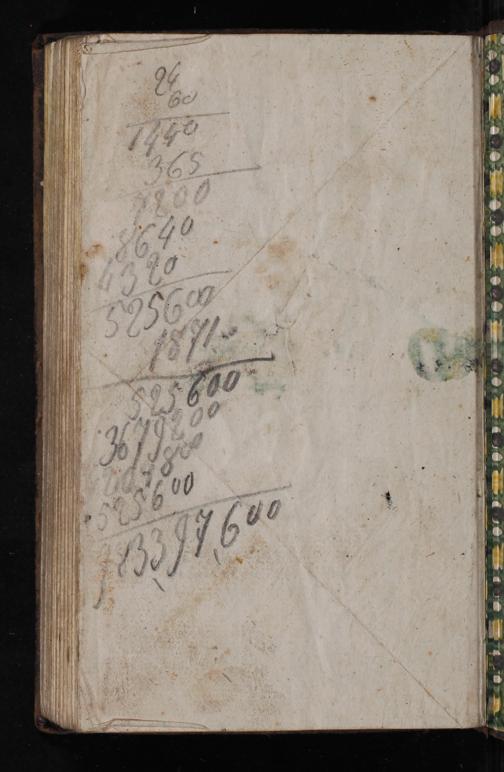 24
60
1440
365
7200
8640
4320
525600
1871
525600
3679200
525600
983397,600